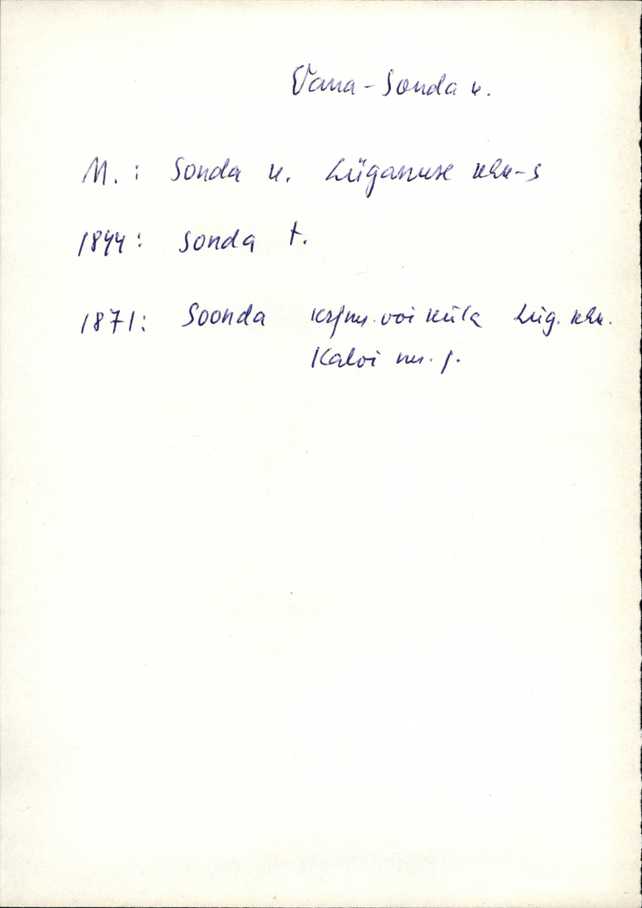 Vana-Sonda k.
M.: Sonda k. Lüganuse khk-s
1844: Sonda t.
1871: Soonda või küla Lüg. khk.
Kalvi m. j.